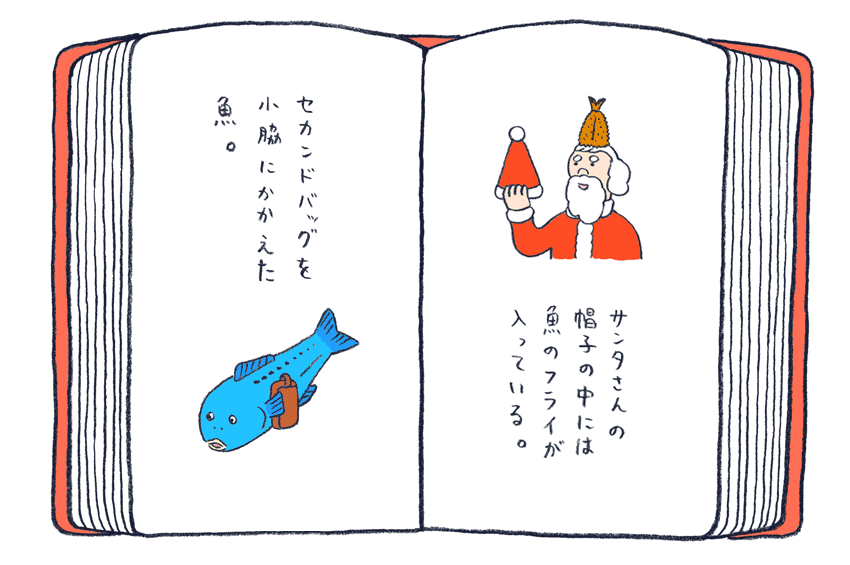 サンタさんの
帽子の中には
魚のフライが
入っている。
セカンドバッグを
小脇にかかえた
魚。